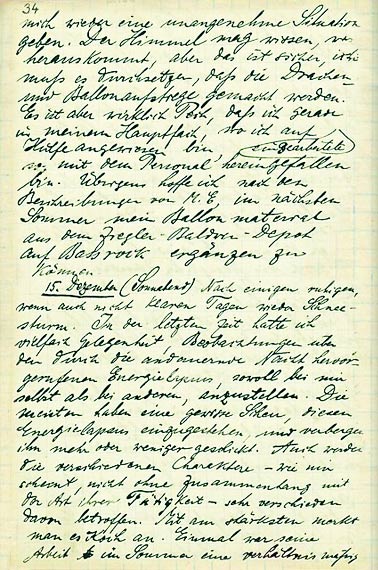 34
mich wieder eine unangenehme Situation
geben. Der Himmel mag wissen, was
herauskommt, aber das ist sicher, ich
muß es durchsetzen, daß die Drachen-
und Ballonaufstiege gemacht werden.
Es ist aber wirklich Pech, daß ich gerade
in meinem Hauptfach, wo ich auf eingearbeitete
Hülfe angewiesen bin
so mit dem Personal hereingefallen
bin. Übrigens hoffe ich nach den
Beschreibungen von M. E. im nächsten
Sommer mein Ballonmaterial
aus dem Ziegler-Baldwin-Depot
auf Bassrock ergänzen zu
können.
15. Dezember (Sonnabend) Nach einigen ruhigen,
wenn auch nicht klaren Tagen wieder Schnee-
sturm. In der letzten Zeit hatte ich
vielfach Gelegenheit Beobachtungen über
den durch die andauernde Nacht hervor-
gerufenen Energielapsus, sowohl bei mir
selbst als bei anderen, anzustellen. Die
meisten haben eine gewisse Scheu, diesen
Energielapsus einzugestehen, und verbergen
ihn mehr oder weniger geschickt. Auch werden
die verschiedenen Charaktere - wie mir
scheint, nicht ohne Zusammenhang mit
der Art ihrer Tätigkeit - sehr verschieden
davon betroffen. Mit am stärksten merkt
man es Koch an. Einmal war seine
Arbeit im Sommer eine verhältnismäßig